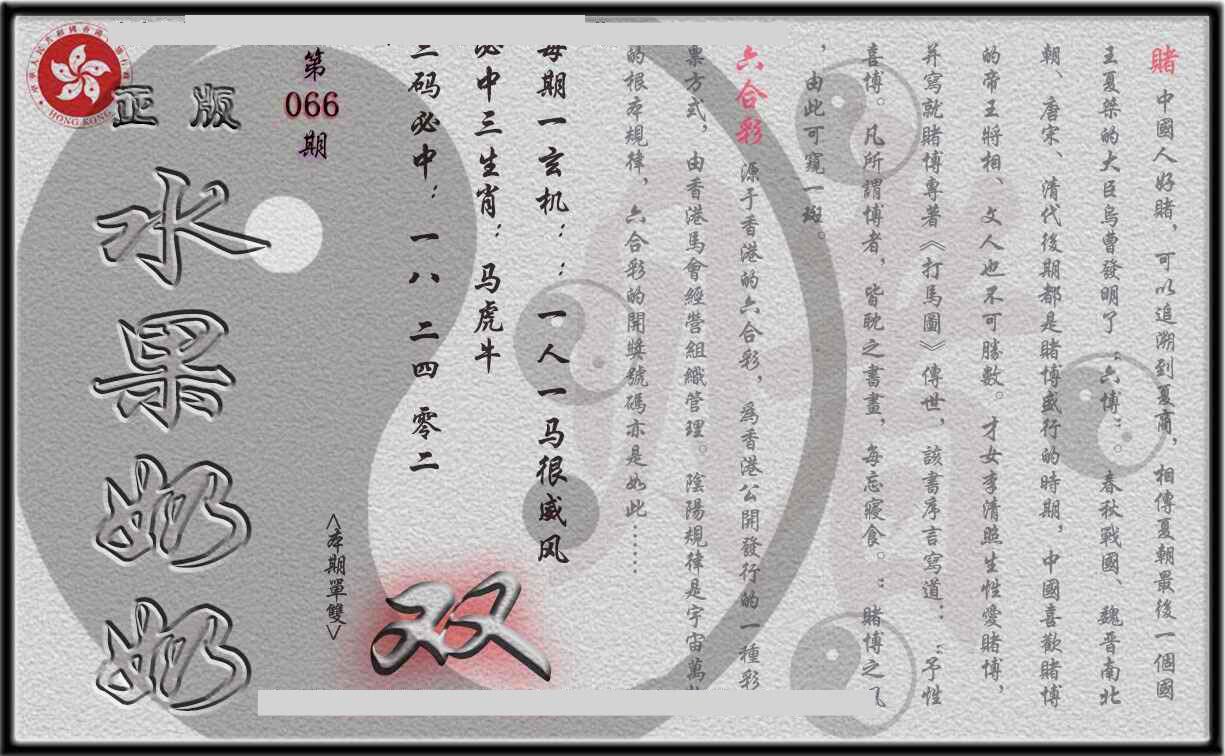 賭 中國人好賭，可以追溯到夏商，相傳夏朝最後一個國
王夏桀的大臣烏曹發明了“六博”。春秋戰國、魏晋南北
朝、唐宋、清代後期都是賭博盛行的時期，中國喜歡賭博
的帝王將相、文人也不可勝數。才女李清照生性愛賭博，
并寫就賭博專著《打馬圖》傳世，該書序言寫道：“予性
喜博。凡所謂博者，皆耽之書畫，每忘寢食。”賭博之風
，由此可窺一斑。
六合彩 源于香港的六合彩，爲香港公開發行的一種彩
票方式，由香港馬會經營組織管理。陰陽規律是宇宙萬
的根本規律，六合彩的開獎號碼亦是如此……
每期一玄机：：一人一马很威风
必中三生肖：马虎牛
三码必中：一八 二四 零二
第
066
期
<本期單雙>
双
正版
水果奶奶
HONG KONG